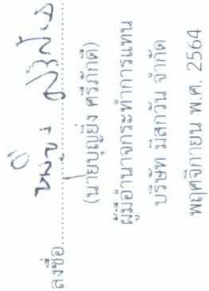 ลงชื่อ
(นายบุญยิ่ง ศรีภักดี)
ผู้มีอำนาจกระทำการแทน
บริษัท มีสกวัน จำกัด
พฤศจิกายน พ.ศ. 2564